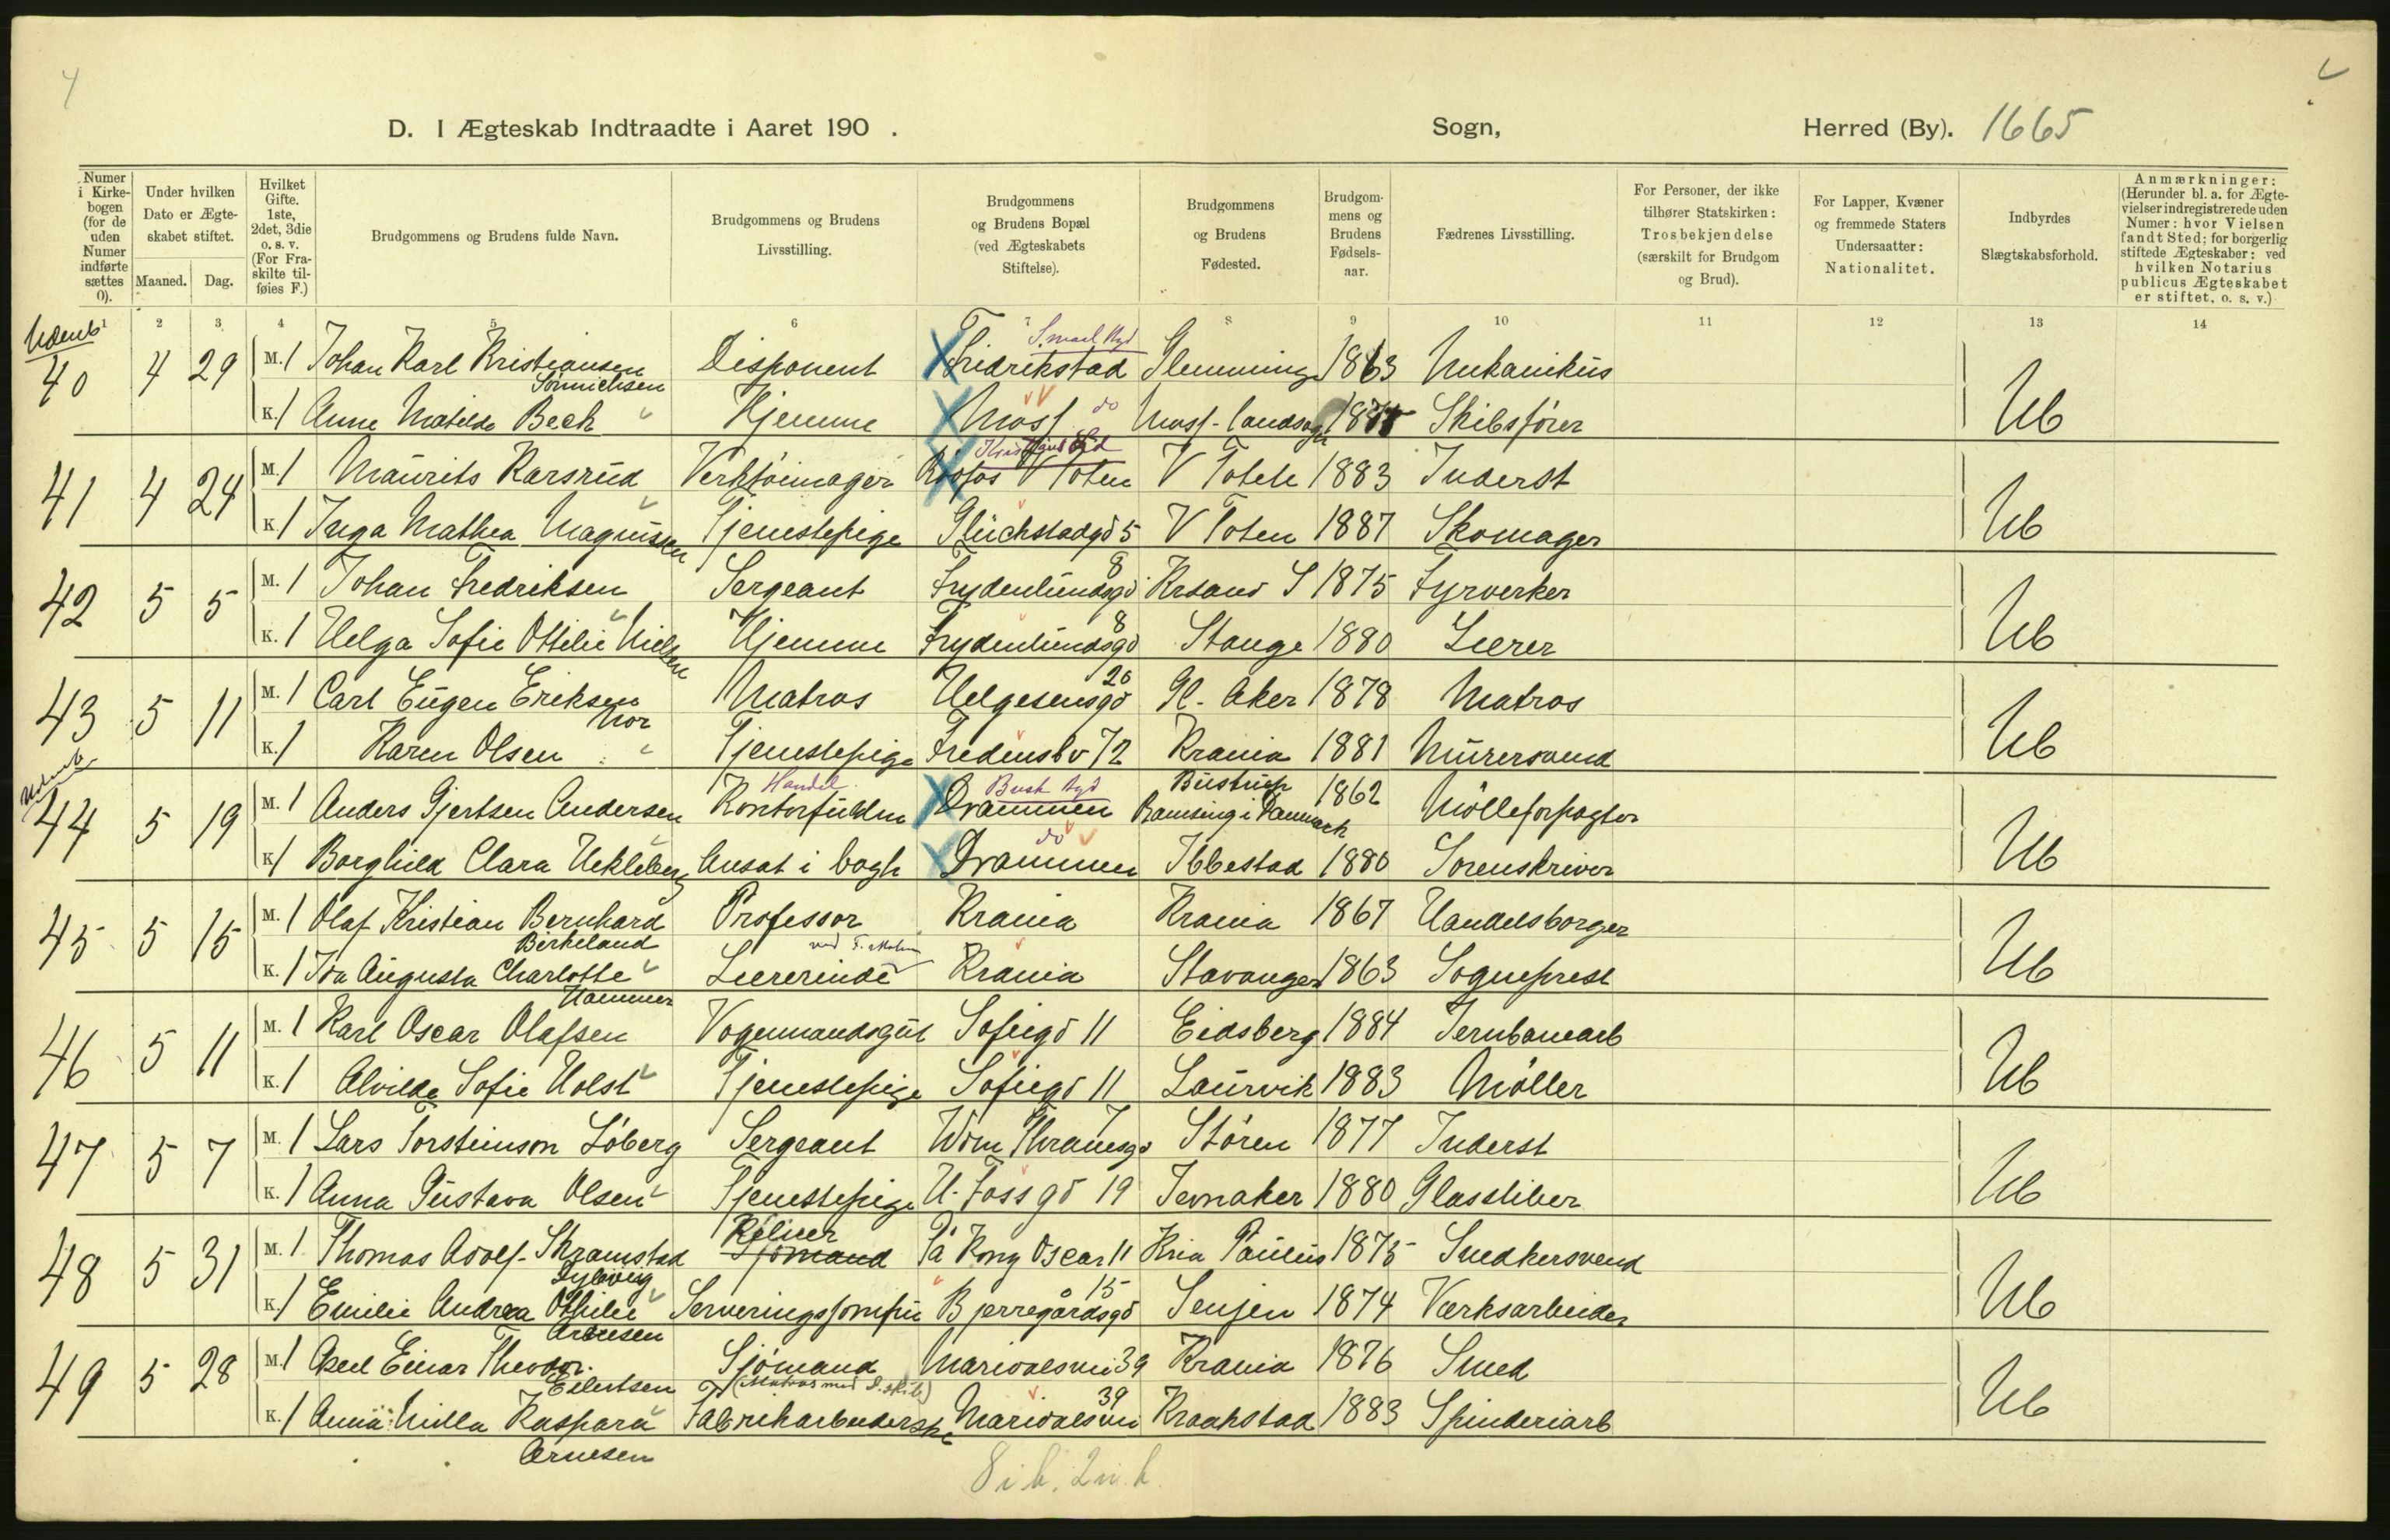 4
D. I Ægteskab Indtraadte i Aaret 190 . Sogn, Herred (By). 1665
Numer i Kirkebogen (for de uden Numer indførte sættes 0). Under hvilken Dato er Ægteskabet stiftet. Maaned. Dag. Hvilket Gifte. 1ste, 2det, 3die o. s. v. (For Fraskilte tilføies F.) Brudgommens og Brudens fulde Navn. Brudgommens og Brudens Livsstilling. Brudgommens og Brudens Bopæl (ved Ægteskabets Stiftelse). Brudgommens og Brudens Fødested. Brudgommens og Brudens Fødselsaar. Fædrenes Livsstilling. For Personer, der ikke tilhører Statskirken: Trosbekjendelse (særskilt for Brudgom og Brud). For Lapper, Kvæner og fremmede Staters Undersaatter: Nationalitet. Indbyrdes Slægtskabsforhold. Anmærkninger: (Herunder bl. a. for Ægtevielser indregistrerede uden Numer: hvor Vielsen fandt Sted; for borgerlig stiftede Ægteskaber: ved hvilken Notarius publicus Ægteskabet er stiftet, o. s. v.)
1 2 3 4 5 6 7 8 9 10 11 12 13 14
Udenb
40 4 29 M. 1 Johan Karl Kristiansen Sönnichsen Disponent Fredrikstad Glemminge 1863 Mekanikus Ub
K. 1 Anne Matilde Bech Hjemme Moss do Moss landsogn Skibsfører
41 4 24 M. 1 Maurits Karsrud Verktøimager V Toten V Toten 1883 Inderst Ub
K. 1 Inga Mathea Magnussen Tjenestepige Glückstadgd 5 V Toten 1887 Skomager
42 5 5 M. 1 Johan Fredriksen Sergeant Frydenlundsgd 8 Krsand S 1875 Fyrverker Ub
K. 1 Helga Sofie Ottilie Nielsen Hjemme Frydenlundsgd 8 Stange 1880 Lærer
43 5 11 M. 1 Carl Eugen Eriksen Matros Helgesensgd 20 Gl. Aker 1878 Matros Ub
K. 1 Karen Olsen Mor Tjenestepige Fredensbv 72 Krania 1881 Murersvend
44 5 19 M. 1 Anders Gjertsen Andersen Handel Kontorfuldm Drammen Busk Byd Bustrup Ramsing i Danmark 1862 Mölleforpagter Ub
K. 1 Borghild Clara Uckleberg Ansat i bogh Drammen do Ibbestad 1880 Sorenskriver
45 5 15 M. 1 Olaf Kristian Bernhard Birkeland Professor Krania Krania 1867 Handelsborger Ub
K. 1 Ida Augusta Charlotte Hammer Lærerinde Krania Stavanger 1863 Sogneprest
46 5 11 M. 1 Karl Oscar Olafsen Vognmandsgut Sofiegd 11 Eidsberg 1884 Jernbanearb Ub
K. 1 Alvilde Sofie Holst Tjenestepige Sofiegd 11 Laurvik 1883 Møller
47 5 7 M. 1 Lars Torsteinson Løberg Sergeant Wilm Thranesgd 7 Støren 1877 Inderst Ub
K. 1 Anna Gustava Olsen Tjenestepige U. Fossgd 19 Jevnaker 1880 Glassliber
48 5 31 M. 1 Thomas Adolf Skramstad Kelner Sjömand På Kong Oscar 11 Kria Paulus 1875 Snedkersvend Ub
K. 1 Emilie Andrea Othilie Sylovig Arnesen Serveringsjomfru Bjerregårdsgd 15 Senjen 1874 Værksarbeider
49 5 28 M. 1 Axel Einar Theodor Eilertsen Sjömand (Matros med D.skib) Maridalsvei 39 Krania 1876 Smed Ub
K. 1 Anna Milla Kaspara Arnesen Fabrikarbeiderske Maridalsvei 39 Kraakstad 1883 Spinderiarb
8 i b. 2 u. b.